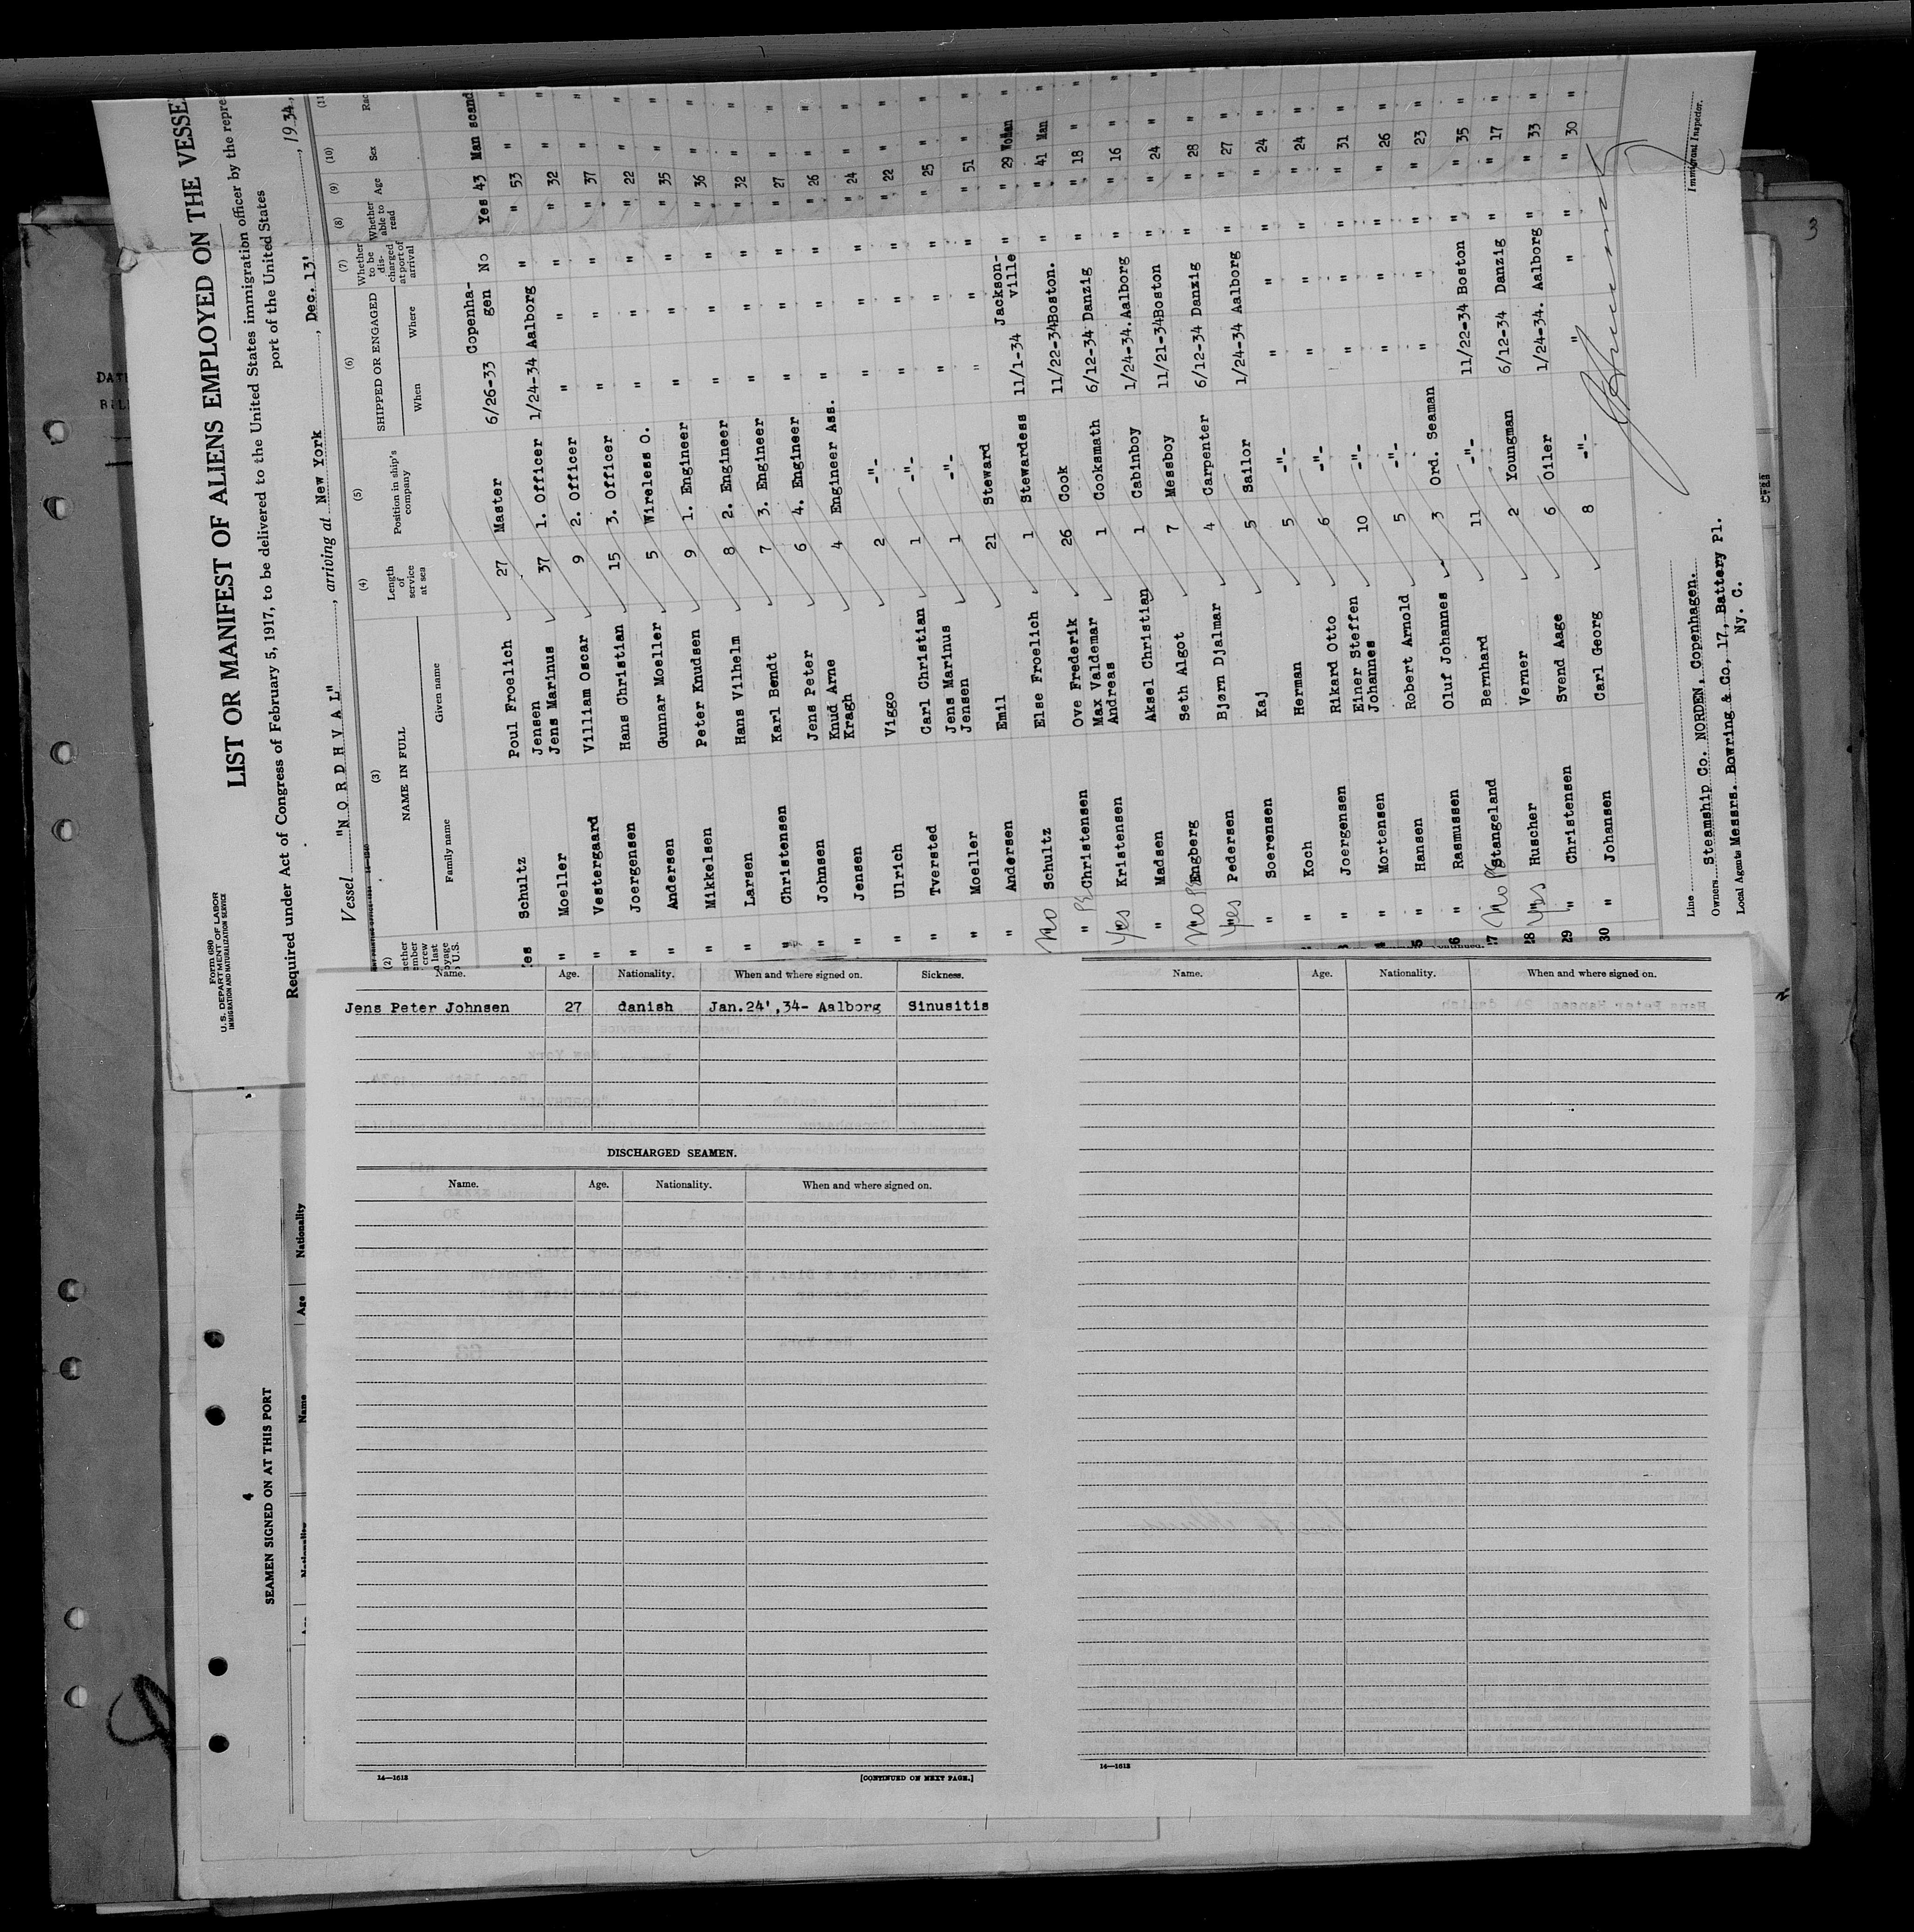 Form 680
U.S. DEPARTMENT OF LABOR
IMMIGRATION AND NATURALIZATION SERVICE
LIST OR MANIFEST OF ALIENS EMPLOYED ON THE VESSE
Required under Act of Congress of February 5, 1917, to be delivered to the United States immigration officer by the repre
port of the United States
Vessel "NORDHVAL", arriving at New York, Dec. 13', 1934,
(2) (3) (4) (5) (6) (7) (8) (9) (10) (11
NAME IN FULL
Family name Given name
Length of service at sea
Position in ship's company
SHIPPED OR ENGAGED
When Where
Whether to be discharged at port of arrival
Whether able to read
Age Sex Rac
es Schultz Poul Froelich 27 Master 6/26-33 Copenhagen No Yes 43 Man scand
" Moeller Jensen Jens Marinus 37 1. Officer 1/24-34 Aalborg " " 53 " "
" Vestergaard Villiam Oscar 9 2. Officer " " " " 32 " "
" Joergensen Hans Christian 15 3. Officer " " " " 37 " "
" Andersen Gunnar Moeller 5 Wireless O. " " " " 22 " "
" Mikkelsen Peter Knudsen 9 1. Engineer " " " " 35 " "
" Larsen Hans Vilhelm 8 2. Engineer " " " " 36 " "
" Christensen Karl Bendt 7 3. Engineer " " " " 32 " "
" Johnsen Jens Peter 6 4. Engineer " " " " 27 " "
" Jensen Knud Arne Kragh 4 Engineer Ass. " " " " 26 " "
" Ulrich Viggo 2 -"- " " " " 24 " "
" Tversted Carl Christian 1 -"- " " " " 22 " "
" Moeller Jens Marinus Jensen 1 -"- " " " " 25 " "
" Andersen Emil 21 Steward " " " " 51 " "
No Schultz Else Froelich 1 Stewardess 11/1-34 Jacksonville " " 29 Woman "
" Christensen Ove Frederik 26 Cook 11/22-34 Boston. " " 41 Man "
Yes Kristensen Max Valdemar Andreas 1 Cooksmath 6/12-34 Danzig " " 18 " "
" Madsen Aksel Christian 1 Cabinboy 1/24-34. Aalborg " " 16 " "
No Engberg Seth Algot 7 Messboy 11/21-34 Boston " " 24 " "
Yes Pedersen Bjørn Djalmar 4 Carpenter 6/12-34 Danzig " " 28 " "
" Soerensen Kaj 5 Sailor 1/24-34 Aalborg " " 27 " "
" Koch Herman 5 -"- " " " " 24 " "
" Joergensen Rikard Otto 6 -"- " " " " 24 " "
" Mortensen Einer Steffen Johannes 10 -"- " " " " 31 " "
5 " Hansen Robert Arnold 5 -"- " " " " 26 " "
6 " Rasmussen Oluf Johannes 3 Ord. Seaman " " " " 23 " "
27 No Stangeland Bernhard 11 -"- 11/22-34 Boston " " 35 " "
28 Yes Huscher Verner 2 Youngman 6/12-34 Danzig " " 17 " "
29 " Christensen Svend Aage 6 Oiler 1/24-34. Aalborg " " 33 " "
30 " Johansen Carl Georg 8 -"- " " " " 30 " "
Line
Immigrant Inspector.
Owners Steamship Co. NORDEN, Copenhagen.
Local Agents Messrs. Bowring & Co, 17, Battery Pl.
Ny. C.
Name. Age. Nationality. When and where signed on. Sickness.
Jens Peter Johnsen 27 danish Jan.24',34- Aalborg Sinusitis
DISCHARGED SEAMEN.
Name. Age. Nationality. When and where signed on.
14—1613
[CONTINUED ON NEXT PAGE.]
Name. Age. Nationality. When and where signed on.
14—1613
4
SEAMEN SIGNED ON AT THIS PORT
Name Age Nationality
3